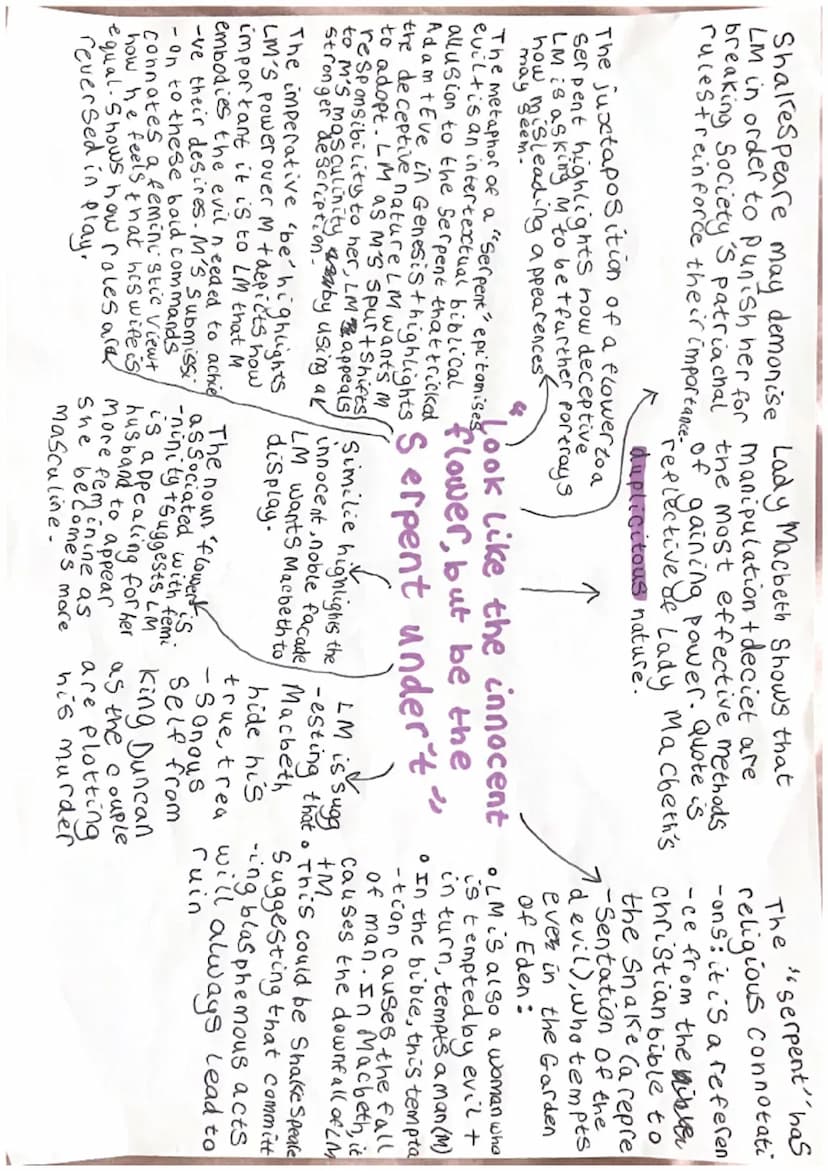 Shakespeare may demonise
LM in order to punish her for
breaking Society's patriachal
rules + reinforce their importance.
Lady Macbeth shows that
manipulation + deciet are
the most effective methods
of gaining power. Quote is
reflective of Lady Macbeth's
duplicitous nature.
The "serpent" has
religious connotati
-ons: it is a referen
-ce from the
christian bible to
the snake (a repre
-sentation of the
devil), who tempts
eve in the Garden
of Eden:
• LM is also a woman who
is tempted by evil +
in turn, tempts a man (M)
• In the bible, this tempta
-tion causes the fall
of man. In Macbeth, it
causes the downfall of LM
+M
• This could be Shakespeare
suggesting that committ
-ing blasphemous acts
will always lead to
ruin
The juxtaposition of a flower to a
serpent highlights how deceptive
LM is asking M to be + further portrays
how misleading appearences
may seem.
"Look like the innocent
flower, but be the
Serpent under't"
The metaphor of a "serpent" epitomises
evil + is an intertextual biblical
allusion to the serpent that tricked
Adam + Eve in Genesis + highlights
the deceptive nature LM wants M
to adopt. LM as M's spur + shifts
responsibility to her, LM appeals
to M's masculinity by using a
stronger description.
Similie highlights the
innocent, noble facade
LM wants Macbeth to
display.
LM is sugg
-esting that
Macbeth
hide his
true, trea
-sonous
self from
king Duncan
as the couple
are plotting
his murder
The imperative 'be' highlights
LM's power over M + depicts how
important it is to LM that M
embodies the evil needed to achie
-ve their desires. M's submissi
-on to these bold commands
connotes a feministic view +
how he feels that his wife is
equal. Shows how roles are
reversed in play.
The noun 'flower' is
associated with femi
-ninity + suggests LM
is appealing for her
husband to appear
more feminine as
she becomes more
masculine.